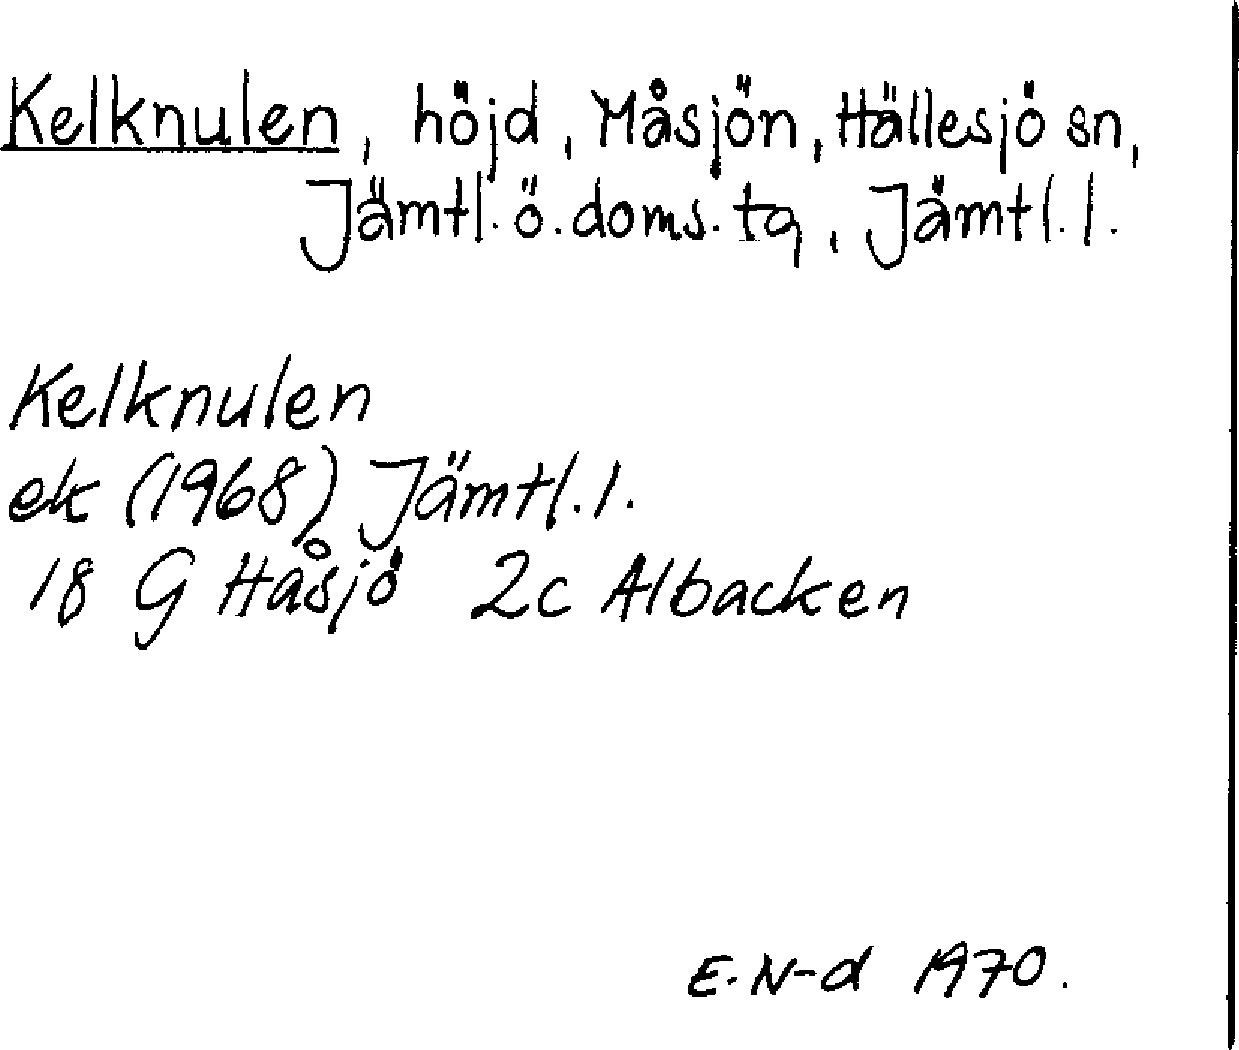 Kelknulen, höjd, Måsjön, Hällesjö sn,
Jämtl. ö. doms. tg, Jämtl. l.
Kelknulen
ek (1968) Jämtl. l.
18 G Håsjö 2c Albacken
E. N-d 1970.